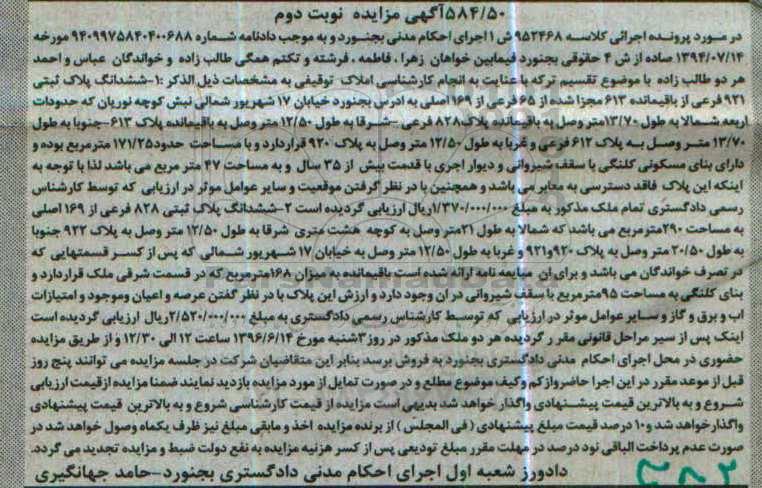 ۵۸۴/۵۰آگهی مزایده نوبت دوم
در مورد پرونده اجرائی کلاسه ۹۵۲۴۶۸ ش ۱ اجرای احکام مدنی بجنورد و به موجب دادنامه شماره ۹۴۰۹۹۷۵۸۴۰۴۰۰۶۸۸ مورخه
۱۳۹۴/۰۷/۱۴ صادره از ش ۴ حقوقی بجنورد فیمابین خواهان زهرا ، فاطمه ، فرشته و تکتم همگی طالب زاده و خواندگان عباس و احمد
هر دو طالب زاده با موضوع تقسیم ترکه با عنایت به انجام کارشناسی املاک توقیفی به مشخصات ذیل الذکر :۱-ششدانگ پلاک ثبتی
۹۲۱ فرعی از باقیمانده ۶۱۳ مجزا شده از ۶۵ فرعی از ۱۶۹اصلی به ادرس بجنورد خیابان ۱۷ شهریور شمالی نبش کوچه نوریان که حدودات
اربعه شمالا به طول ۱۳/۷۰متر وصل به باقیمانده پلاک ۸۲۸ فرعی -شرقا به طول ۱۲/۵۰ متر وصل به باقیمانده پلاک ۶۱۳-جنوبا به طول
۱۳/۷۰ متر وصل به پلاک ۶۱۲ فرعی و غربا به طول ۱۲/۵۰ متر وصل به پلاک ۹۲۰ قراردارد و با مساحت حدود۱۷۱/۲۵ مترمربع بوده و
دارای بنای مسکونی کلنگی با سقف شیروانی و دیوار اجری با قدمت بیش از ۳۵ سال و به مساحت ۴۷ متر مربع می باشد لذا با توجه به
اینکه این پلاک فاقد دسترسی به معابر می باشد و همچنین با در نظر گرفتن موقعیت و سایر عوامل موثر در ارزیابی که توسط کارشناس
رسمی دادگستری تمام ملک مذکور به مبلغ ۱/۳۷۰/۰۰۰/۰۰۰ریال ارزیابی گردیده است ۲-ششدانگ پلاک ثبتی ۸۲۸ فرعی از ۱۶۹ اصلی
به مساحت ۲۹۰مترمربع می باشد که شمالا به طول ۲۱متر وصل به کوچه هشت متری شرقا به طول ۱۲/۵۰ متر وصل به پلاک ۹۲۲ جنوبا
به طول ۲۰/۵۰ متر وصل به پلاک ۹۲۰و۹۲۱ و غربا به طول ۱۲/۵۰ متر وصل به خیابان ۱۷ شهریور شمالی که پس از کسر قسمتهایی که
در تصرف خواندگان می باشد و برای ان مبایعه نامه ارائه شده است باقیمانده به میزان ۱۶۸مترمربع که در قسمت شرقی ملک قراردارد و
بنای کلنگی به مساحت ۹۵مترمربع با سقف شیروانی در ان وجود دارد و ارزش این پلاک با در نظر گفتن عرصه و اعیان وموجود و امتیازات
اب و برق و گاز و سایر عوامل موثر در ارزیابی که توسط کارشناس رسمی دادگستری به مبلغ ۲/۵۲۰/۰۰۰/۰۰۰ریال ارزیابی گردیده است
اینک پس از سیر مراحل قانونی مقرر گردیده هر دو ملک مذکور در روز ۳شنبه مورخ ۱۳۹۶/۶/۱۴ ساعت ۱۲ الی ۱۲/۳۰ و از طریق مزایده
حضوری در محل اجرای احکام مدنی دادگستری بجنورد به فروش برسد بنابر این متقاضیان شرکت در جلسه مزایده می توانند پنج روز
قبل از موعد مقرر در این اجرا حاضر واز کم وکیف موضوع مطلع و در صورت تمایل از مورد مزایده بازدید نمایند ضمنا مزایده ازقیمت ارزیابی
شروع و به بالاترین قیمت پیشنهادی واگذار خواهد شد بدیهی است مزایده از قیمت کارشناسی شروع و به بالاترین قیمت پیشنهادی
واگذار خواهد شد و۱۰ درصد قیمت مبلغ پیشنهادی ( فی المجلس ) از برنده مزایده اخذ و مابقی مبلغ نیز ظرف یکماه وصول خواهد شد در
صورت عدم پرداخت الباقی نود درصد در مهلت مقرر مبلغ تودیعی پس از کسر هزنیه مزایده به نفع دولت ضبط و مزایده تجدید می گردد.
دادورز شعبه اول اجرای احکام مدنی دادگستری بجنورد-حامد جهانگیری